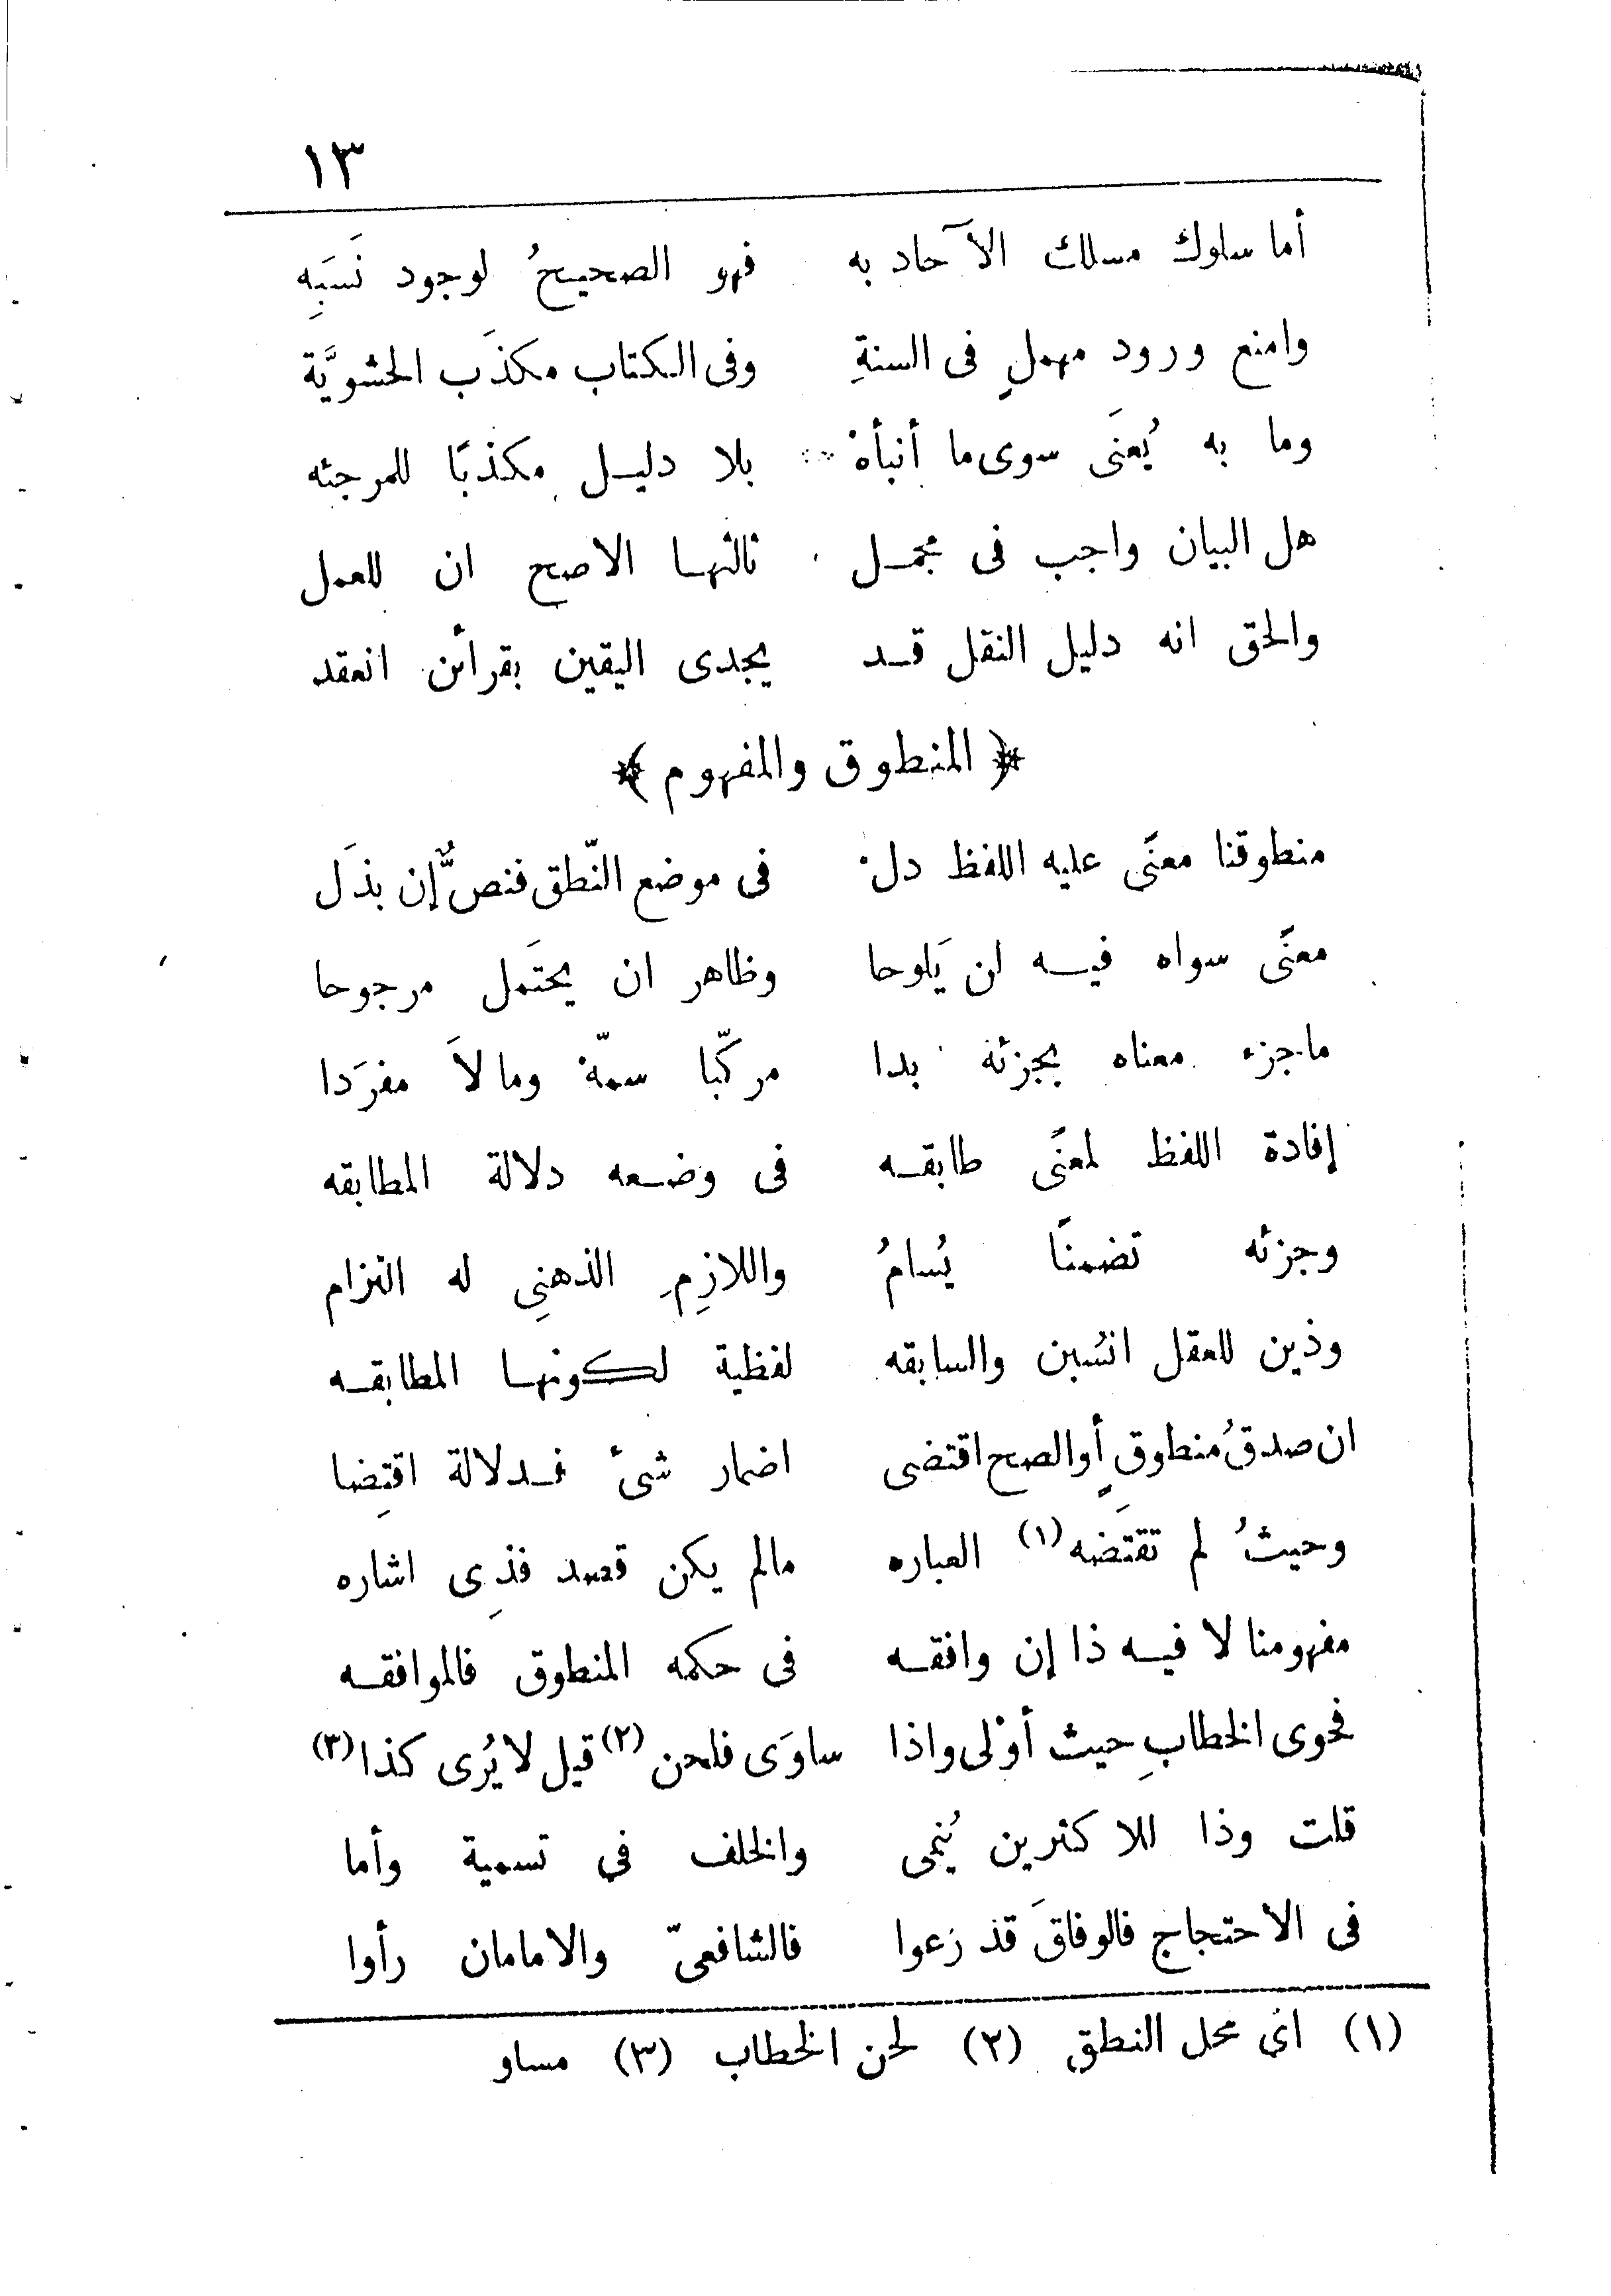 ١٣
أما سلوك مسلك الآحاد به فهو الصحيحُ لوجود نَسَبِه
وامنع ورود مهملٍ فى السنةِ وفى الكتاب مكذَب الحشويَّة
وما به يُعنَى سوى ما أنبأهْ بلا دليل مكذبًا للمرجئه
هل البيان واجب فى مجمل ثالثها الاصح ان للعمل
والحق انه دليل النقل قد يجدى اليقين بقرأن انعقد
﴿ المنطوق والمفهوم ﴾
منطوقنا معنًى عليه اللفظ دلْ فى موضع النّطق فنصٌّ إن بذَل
معنًى سواه فيه لن يَلوحا وظاهر ان يحتَمل مرجوحا
ما جزء معناه بجزئه بدا مركّبا سمّه وما لاَ مفرَدا
إفادة اللفظ لمعنًى طابقه فى وضعه دلالة المطابقه
وجزئه تضمنًا يُسامُ واللازِمِ الذهنِى له التزام
وذين للعقل انسُبن والسابقه لفظية لكونها المطابقه
ان صدقُ منطوقٍ أو الصح اقتضى اضمار شئ فدلالة اقتِضا
وحيثُ لم تقتَضه (١) العباره مالم يكن قصد فذِى اشاره
مفهومنا لا فيه ذا إن وافقه فى حكمه المنطوق فالموافقه
فحوى الخطابِ حيث أوْلى واذا ساوَى فلحن (٢) قيل لا يُرى كذا (٣)
قلت وذا للاكثرين يُنمى والخلف فى تسمية وأما
فى الاحتجاج فالوفاقَ قد رَعوا فالشافعىّ والامامان رأوا
(١) اى محل النطق (٢) لحن الخطاب (٣) مساو